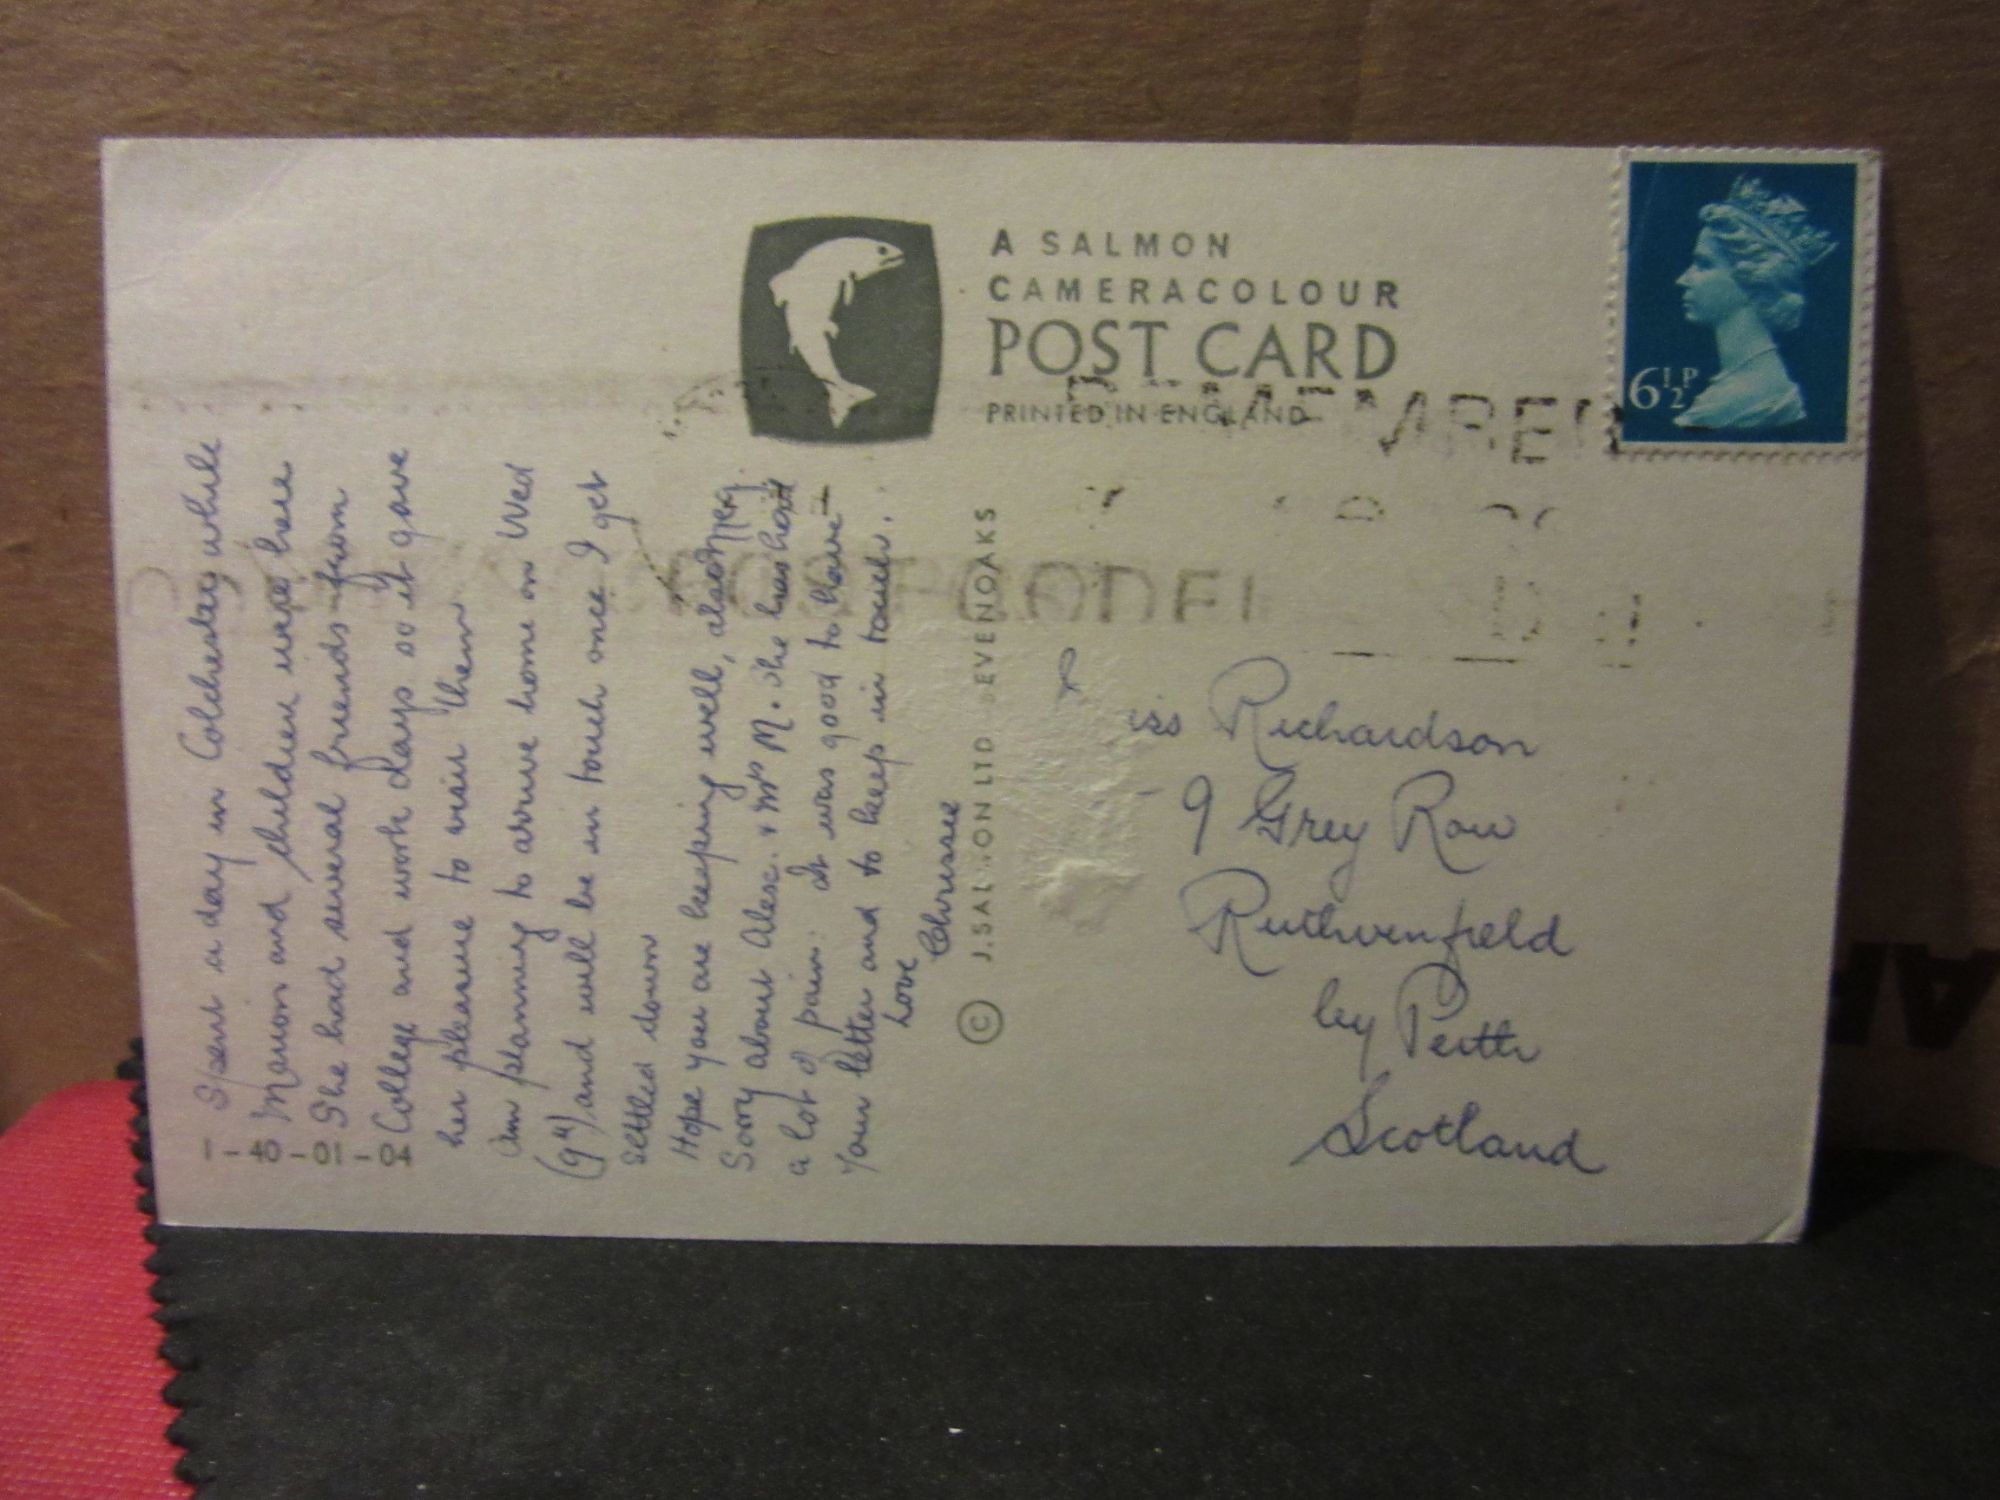 A SALMON
CAMERACOLOUR
POST CARD
PRINTED IN ENGLAND
6½P
REMEMBER
POSTCODE
Spent a day in Colchester while
Marion and children were here
She had several friends from
College and work days so it gave
her pleasure to visit them
Am planning to arrive home on Wed
(9th) and will be in touch once I get
settled down
Hope you are keeping well, also Meg.
Sorry about Alex. & Mrs M. She has had
a lot of pain. It was good to have
your letter and to keep in touch.
Love
Chrissee
1-40-01-04
© J. SALMON LTD SEVENOAKS
iss Richardson
9 Grey Row
Ruthvenfield
by Perth
Scotland